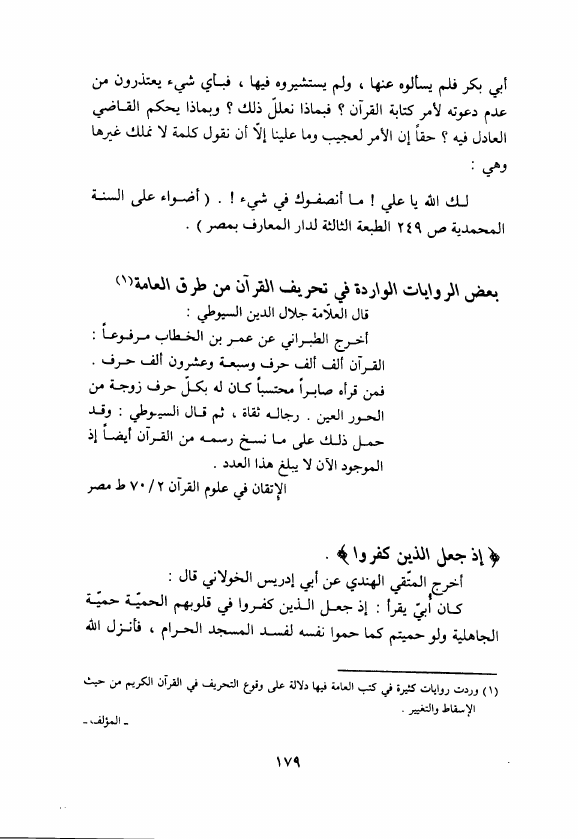 أبي بكر فلم يسألوه عنها ، ولم يستشيروه فيها ، فبأي شيء يعتذرون من
عدم دعوته لأمر كتابة القرآن ؟ فبماذا نعلل ذلك ؟ وبماذا يحكم القاضي
العادل فيه ؟ حقاً إن الأمر لعجيب وما علينا إلّا أن نقول كلمة لا نملك غيرها
وهي :
لك الله يا علي ! ما أنصفوك في شيء ! . ( أضواء على السنة
المحمدية ص ٢٤٩ الطبعة الثالثة لدار المعارف بمصر ) .
بعض الروايات الواردة في تحريف القرآن من طرق العامة(١)
قال العلّامة جلال الدين السيوطي :
أخرج الطبراني عن عمر بن الخطاب مرفوعاً :
القرآن ألف ألف حرف وسبعة وعشرون ألف حرف .
فمن قرأه صابراً محتسباً كان له بكلّ حرف زوجة من
الحور العين . رجاله ثقاة ، ثم قال السيوطي : وقد
حمل ذلك على ما نسخ رسمه من القرآن أيضاً إذ
الموجود الآن لا يبلغ هذا العدد .
الإتقان في علوم القرآن ٢/ ٧٠ ط مصر
﴿ إذ جعل الذين كفروا ﴾ .
أخرج المتّقي الهندي عن أبي إدريس الخولاني قال :
كان أُبيّ يقرأ : إذ جعل الذين كفروا في قلوبهم الحميّة حميّة
الجاهلية ولو حميتم كما حموا نفسه لفسد المسجد الحرام ، فأنزل الله
(١) وردت روايات كثيرة في كتب العامة فيها دلالة على وقوع التحريف في القرآن الكريم من حيث
الإسقاط والتغيير .
ـ المؤلف ـ
١٧٩